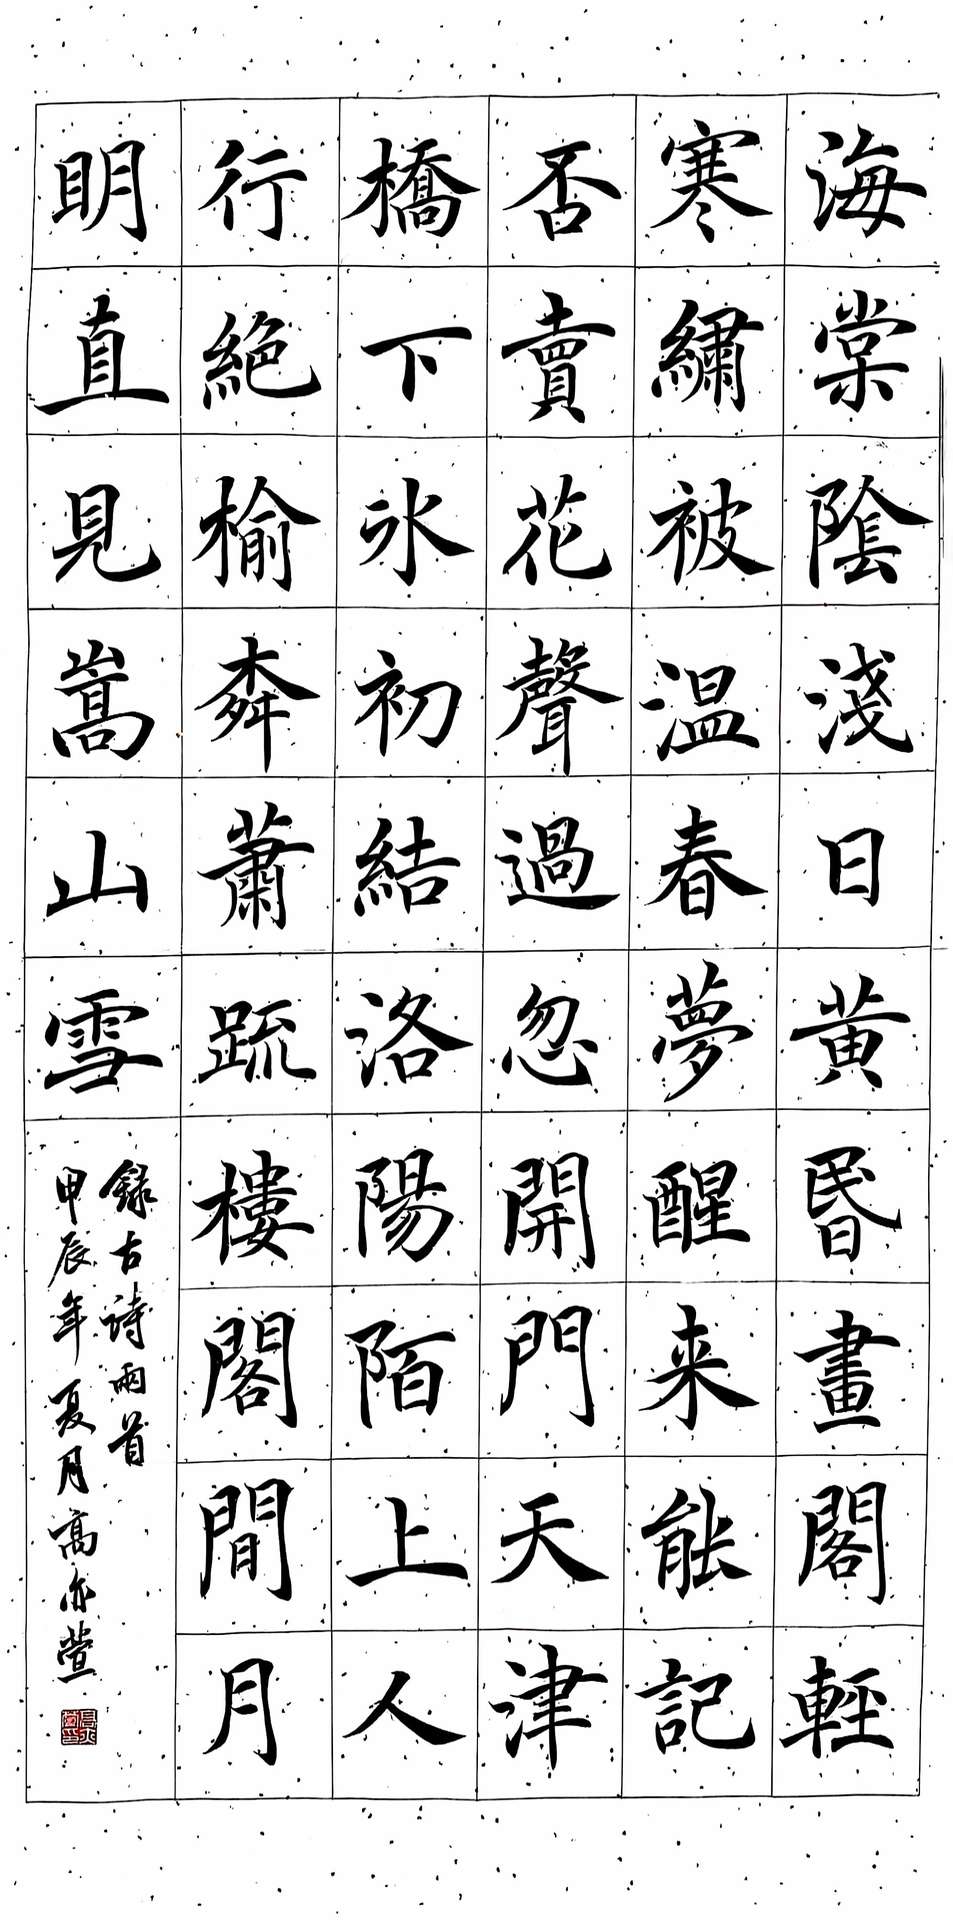 海棠陰淺日黃昏畫閣輕
寒繡被溫春夢醒来能記
否賣花聲過忽開門天津
橋下氷初結洛陽陌上人
行絕榆柳蕭疏樓閣間月
明直見嵩山雪
錄古詩兩首
甲辰年夏月高亦萱